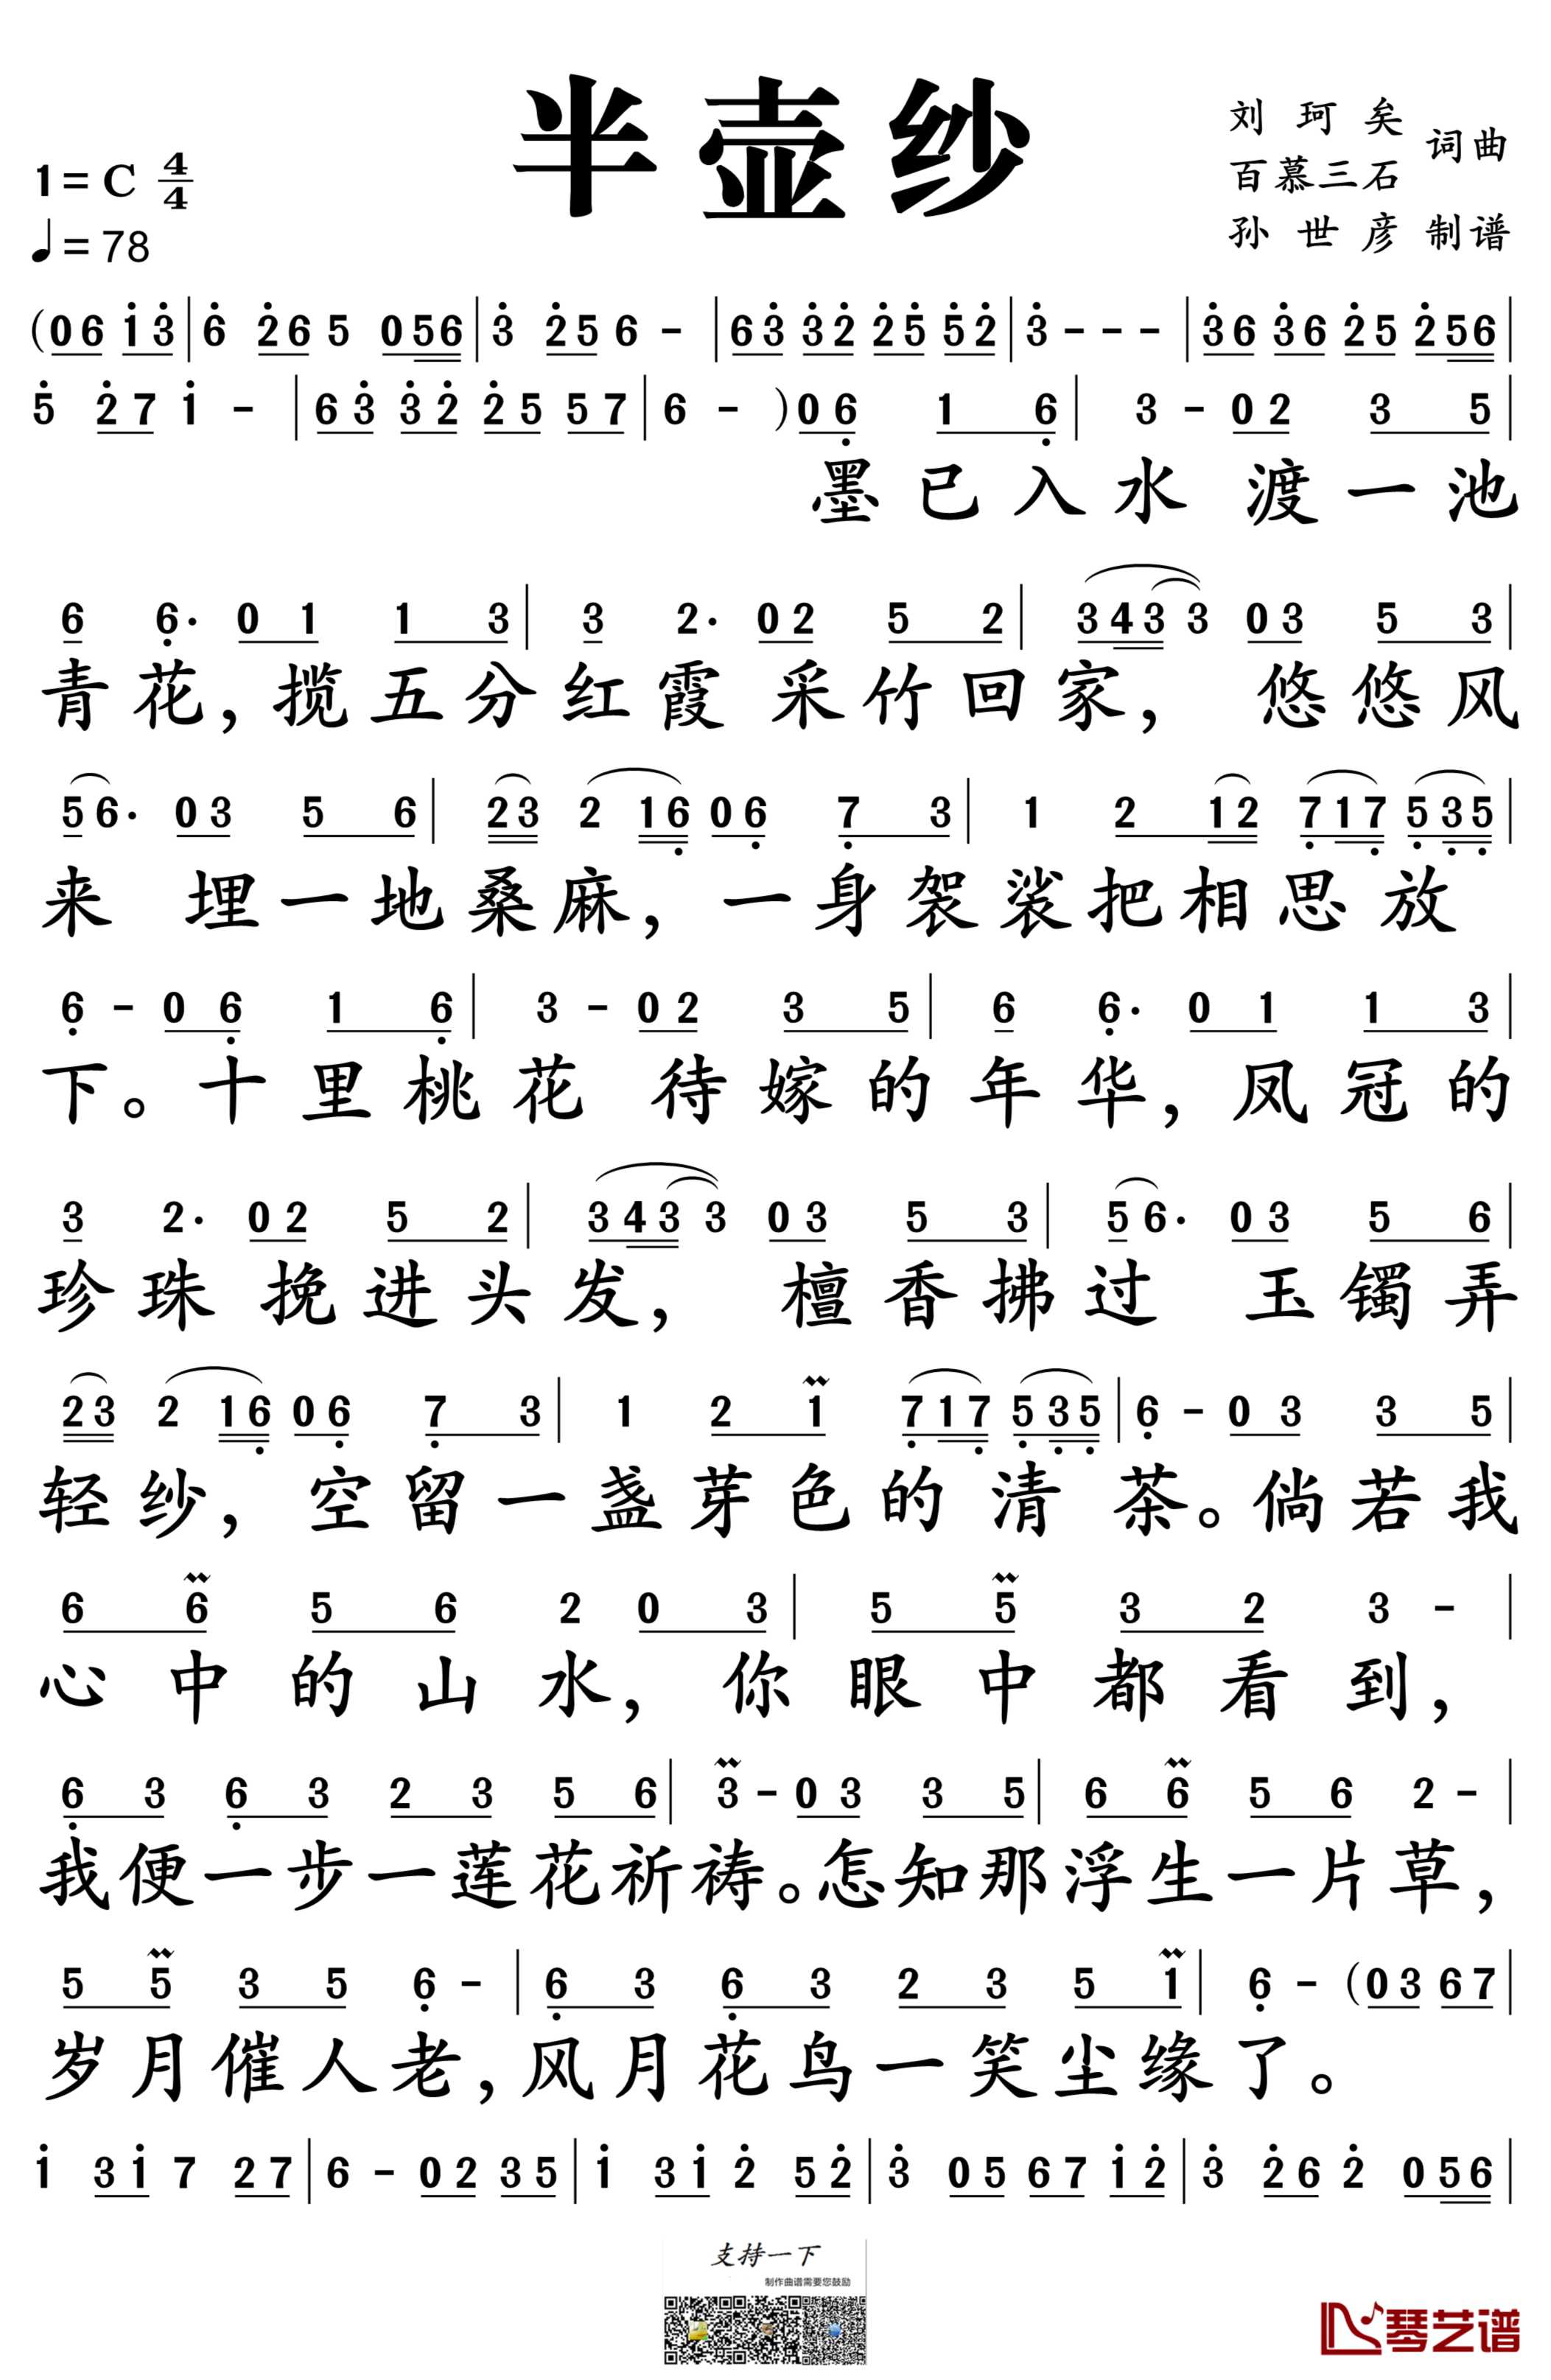 半壶纱
刘珂矣
百慕三石 词曲
孙世彦 制谱
1=C 4/4
♩=78
(06 1̇3̇|6̇ 2̇6 5 056|3̇ 2̇5 6 -|63̇ 3̇2̇ 2̇5̇ 5̇2̇|3̇---|3̇6 3̇6 2̇5 2̇56|
5̇ 2̇7 1̇ -|63̇ 3̇2̇ 2̇5 57|6 - )06̣ 1 6̣|3 - 02 3 5|
墨已入水 渡一池
6 6̣· 0 1 1 3|3 2· 02 5 2|343 3 03 5 3|
青花,揽五分红霞 采竹回家, 悠悠风
56· 03 5 6|23 2 16̣ 06̣ 7̣ 3|1 2 12 7̣17̣ 5̣3̣5̣|
来 埋一地桑麻,一身袈裟把相思放
6̣ - 0 6̣ 1 6̣|3 - 02 3 5|6 6̣· 0 1 1 3|
下。十里桃花 待嫁的年华,凤冠的
3 2· 02 5 2|343 3 03 5 3|56· 03 5 6|
珍珠 挽进头发, 檀香拂过 玉镯弄
23 2 16̣ 06̣ 7̣ 3|1 2 1 7̣17̣ 5̣3̣5̣|6̣ - 0 3 3 5|
轻纱, 空留一盏芽色的清茶。倘若我
6 6 5 6 2 0 3|5 5 3 2 3 -|
心中的山水, 你眼中都看到,
6̣ 3 6̣ 3 2 3 5 6|3 - 03 3 5|6 6 5 6 2 -|
我便一步一莲花祈祷。怎知那浮生一片草,
5 5 3 5 6̣ -|6̣ 3 6̣ 3 2 3 5 1|6̣ - (03 67|
岁月催人老,风月花鸟一笑尘缘了。
1̇ 31̇ 7 27|6 - 02 35|1̇ 31̇ 2̇ 52̇|3̇ 05 67 1̇2̇|3̇ 2̇6 2̇ 056|
支持一下
制作曲谱需要您鼓励
琴艺谱